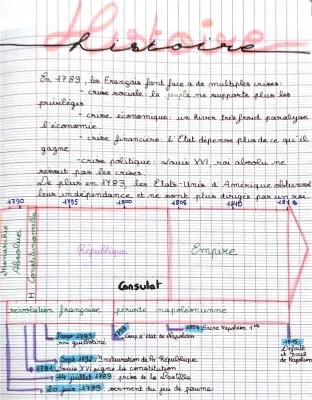 Histoire
histoire
En 1789, les Français font face a de multiples crises:
- crise sociale: le peuple ne supporte plus les
privilèges
- crise économique: un hiver très froid paralyse
l'économie
- crise financière: l'État dépense plus de ce qu'il
gagne
- crise politique: Louis XVI, roi absolu ne
resout pas les crises.
De plus en 1783, les États-Unis d'Amérique obtiennent
leur indépendance et ne sont plus dirigés par un roi
1790 1795 1800 1805 1810 1815
Monarchie Absolue
M Constitutionnelle
République
Consulat
Empire
révolution française période napoléonienne
Janv 1793
roi guillotiné
1799 Coup d'état de Napoléon
1804 Sacre Napoléon 1er
1815
Défaite
et exil
de Napoléon
Sept 1792 Instauration de la République
1791 Louis XVI signe la constitution
14 juillet 1789 prise de la Bastille
20 juin 1789 serment du jeu de paume